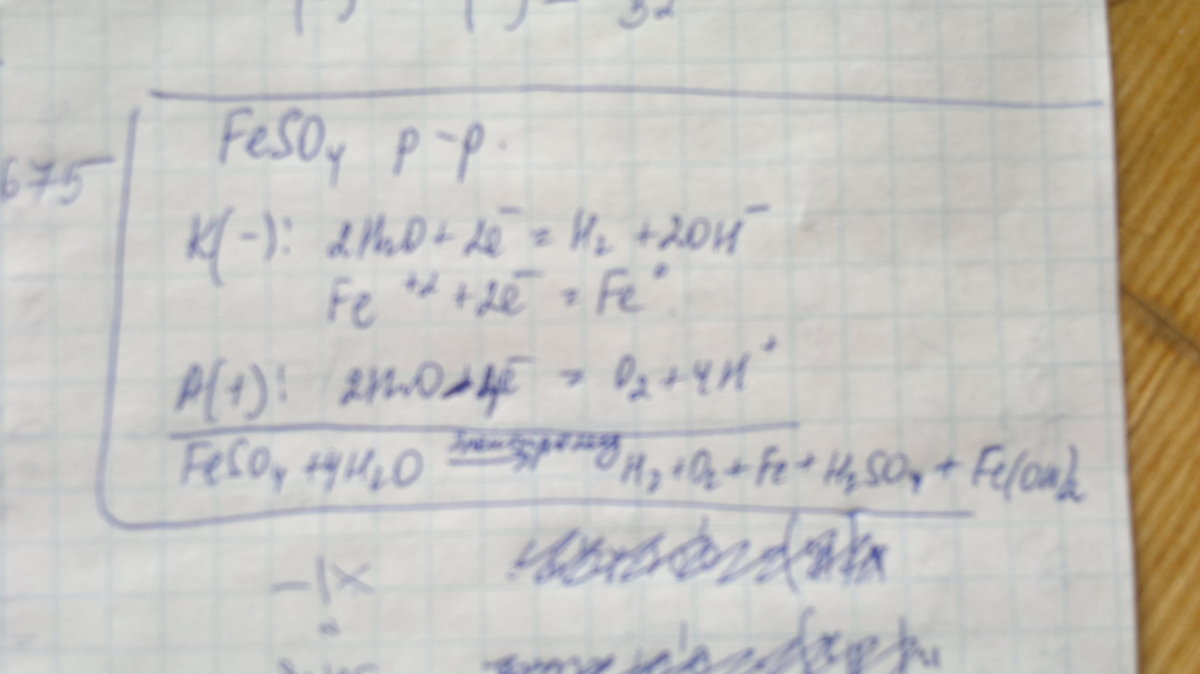 32
675
FeSO₄ р-р.
K(-): 2H₂O + 2e⁻ = H₂ + 2OH⁻
Fe⁺² + 2e⁻ = Fe°.
A(+): 2H₂O - 4e⁻ = O₂ + 4H⁺
FeSO₄ + 4H₂O = H₂ + O₂ + Fe + H₂SO₄ + Fe(OH)₂
-1x